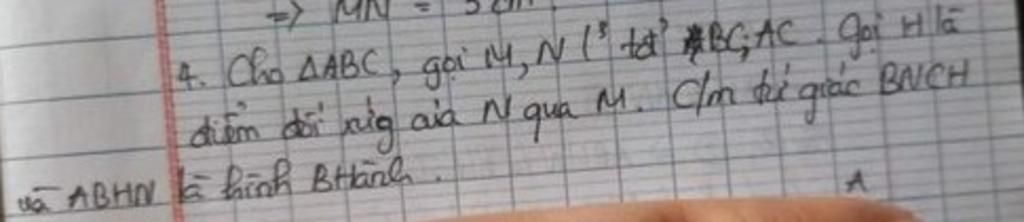 => MN = 3 cm.
4. Cho ΔABC, gọi M, N l² tđ BC, AC. Gọi H là
điểm đối xứg của N qua M. C/m tứ giác BNCH
và ABHN là hình BHành.
A